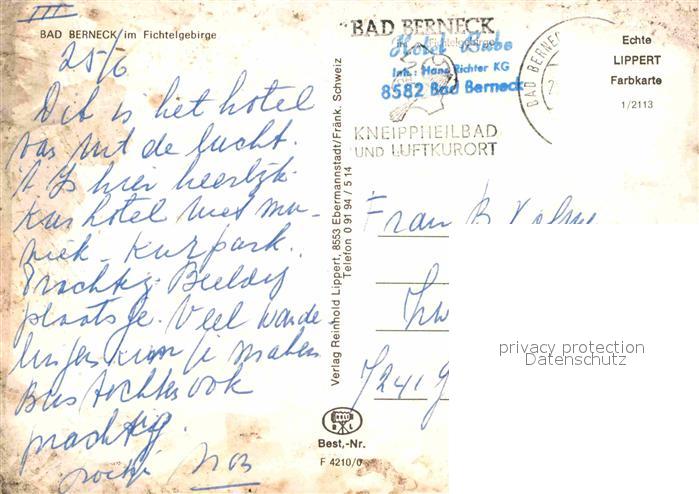 III
BAD BERNECK im Fichtelgebirge
25/6
Dit is het hotel
van uit de lucht.
't Is hier heerlijk.
Kur hotel met mu-
ziek - Kurpark.
Prachtig Beeldig
plaatsje. Veel wande
lingen kun je maken
Bus tochten ook
prachtig.
BAD BERNECK
im Fichtelgebirge
Hotel Bube
Inh.: Hans Richter KG
8582 Bad Berneck
KNEIPPHEILBAD
UND LUFTKURORT
BAD BERNECK
Echte
LIPPERT
Farbkarte
1/2113
Verlag Reinhold Lippert, 8553 Ebermannstadt/Fränk. Schweiz
Telefon 0 91 94 / 5 14
Frau B.
7241
privacy protection
Datenschutz
Best,-Nr.
F 4210/0